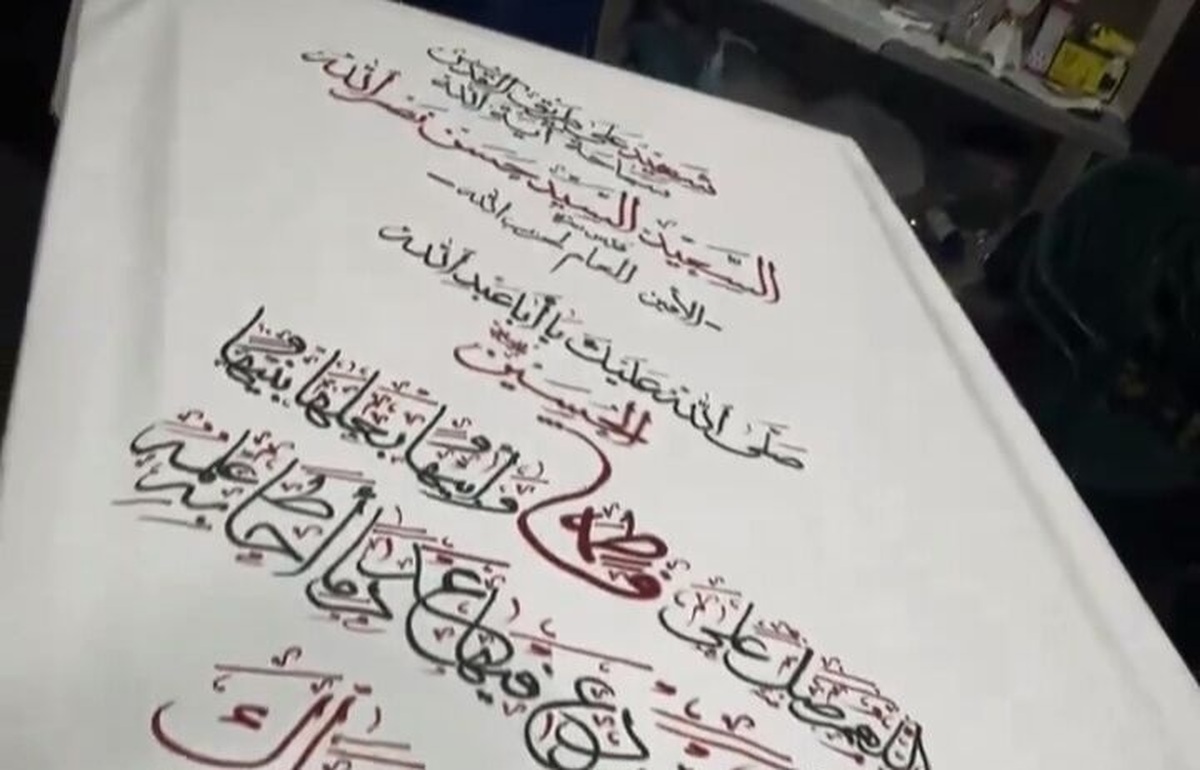 شهيد على طريق القدس
سماحة آية الله
السيد حسن نصر الله
الأمين العام لحزب الله
صلى الله عليك يا أبا عبد الله
الحسين
اللهم صل على فاطمة وأبيها وبعلها وبنيها
والسر المستودع فيها عدد ما أحاط به علمك